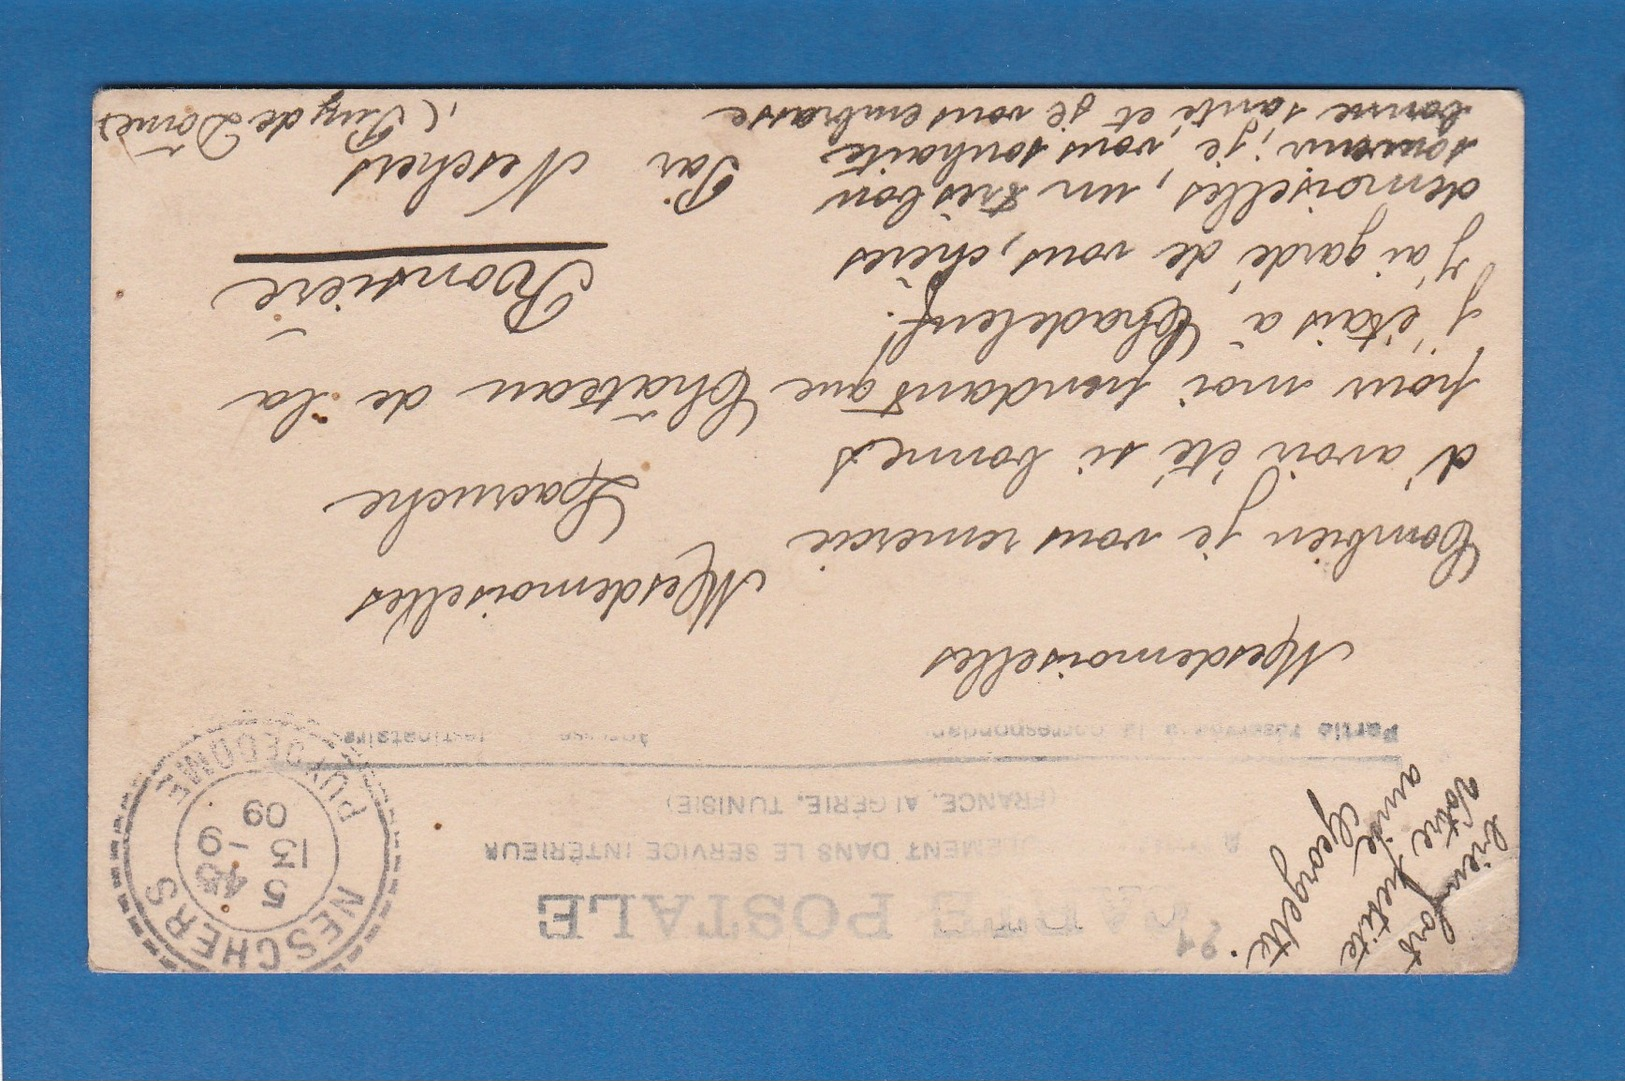 CARTE POSTALE
DANS LE SERVICE INTÉRIEUR
(FRANCE, ALGÉRIE, TUNISIE)
Partie réservée à la correspondance
Adresse destinataire
NESCHERS
5 45
13 -9
09
PUY DE DOME
Mesdemoiselles
Combien je vous remercie
d'avoir été si bonnes
pour moi pendant que
j'étais à Chadeleuf!
J'ai gardé de vous, chères
demoiselles, un très bon
souvenir, je vous souhaite
bonne santé et je vous embrasse
bien fort
Votre petite
amie
Georgette.
Mesdemoiselles
Lacruche
Château de la
Ronsière
Par Neschers
(Puy de Dôme)